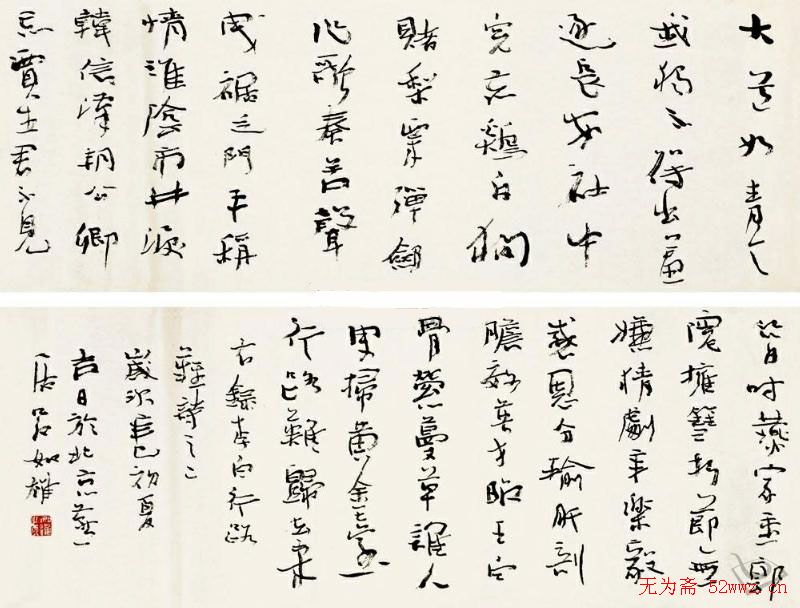 大道如青天
我獨不得出羞
逐長安社中
兒赤鷄白狗
賭梨栗彈劍
作歌奏苦聲
曳裾王門不稱
情淮陰市井笑
韓信漢朝公卿
忌賈生君不見
昔時燕家重郭
隗擁篲折節無
嫌猜劇辛樂毅
感恩分輸肝剖
膽效英才昭王白
骨縈蔓草誰人
更掃黃金臺
行路難歸去來
右錄李白行路
難詩之二
歲次辛巳初夏
吉日於北京燕一
居呂如雄
无为斋-52wwz.cn